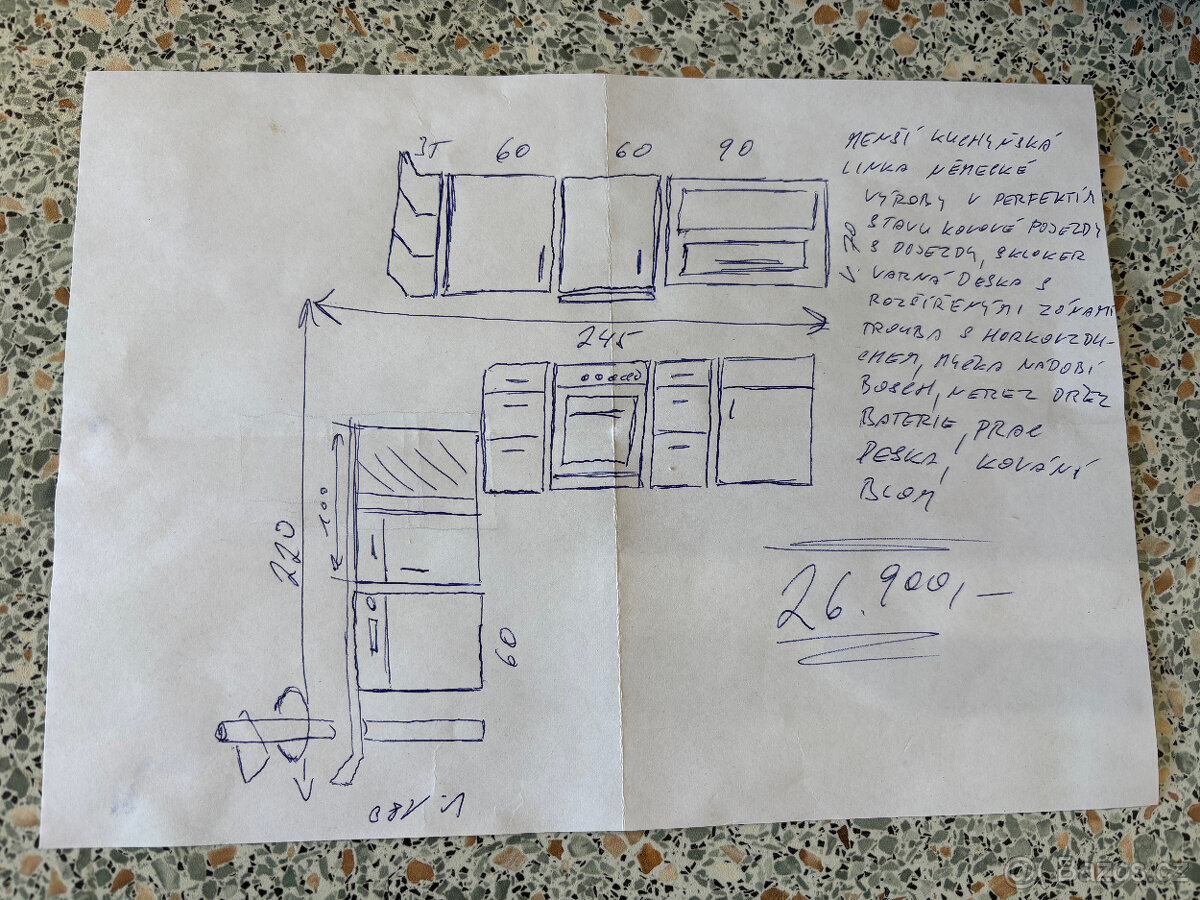 35 60 60 90
MENŠÍ KUCHYŇSKÁ
LINKA NĚMECKÉ
VÝROBY V PERFEKTÍM
STAVU KOVOVÉ POJEZDY
S DOJEZDY, SKLOKER
VARNÁ DESKA S
ROZŠÍŘENÝMI ZÓNAMI
TROUBA S HORKOVZDU-
CHEM, MYČKA NÁDOBÍ
BOSCH, NEREZ DŘEZ
BATERIE, PRAC
DESKA, KOVÁNÍ
BLOM
V 70
245
100
220
60
26.900,-
V. 180
Bazos.cz